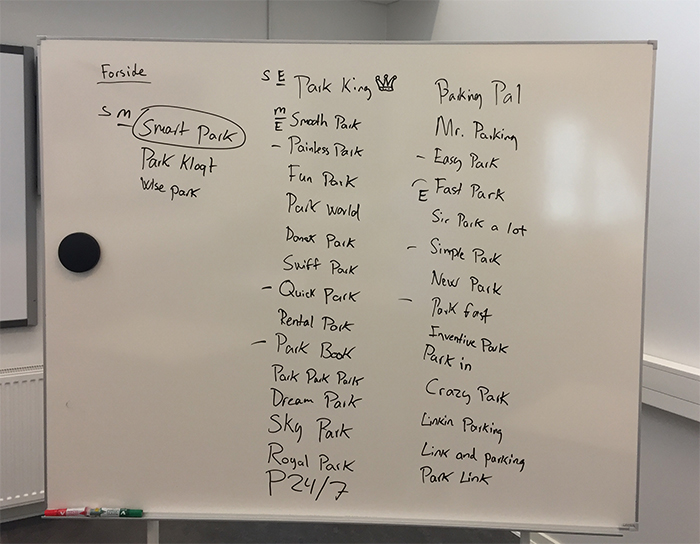 Forside
S M Smart Park
Park Klogt
Wise park
S E Park King
M
E Smooth Park
- Painless Park
Fun Park
Park World
Park
Swift Park
- Quick Park
Rental Park
- Park Book
Park Park Park
Dream Park
Sky Park
Royal Park
P24/7
Parking Pal
Mr. Parking
- Easy Park
E Fast Park
Sir Park a lot
- Simple Park
New Park
- Park fast
Inventive Park
Park in
Crazy Park
Linkin Parking
Link and parking
Park Link